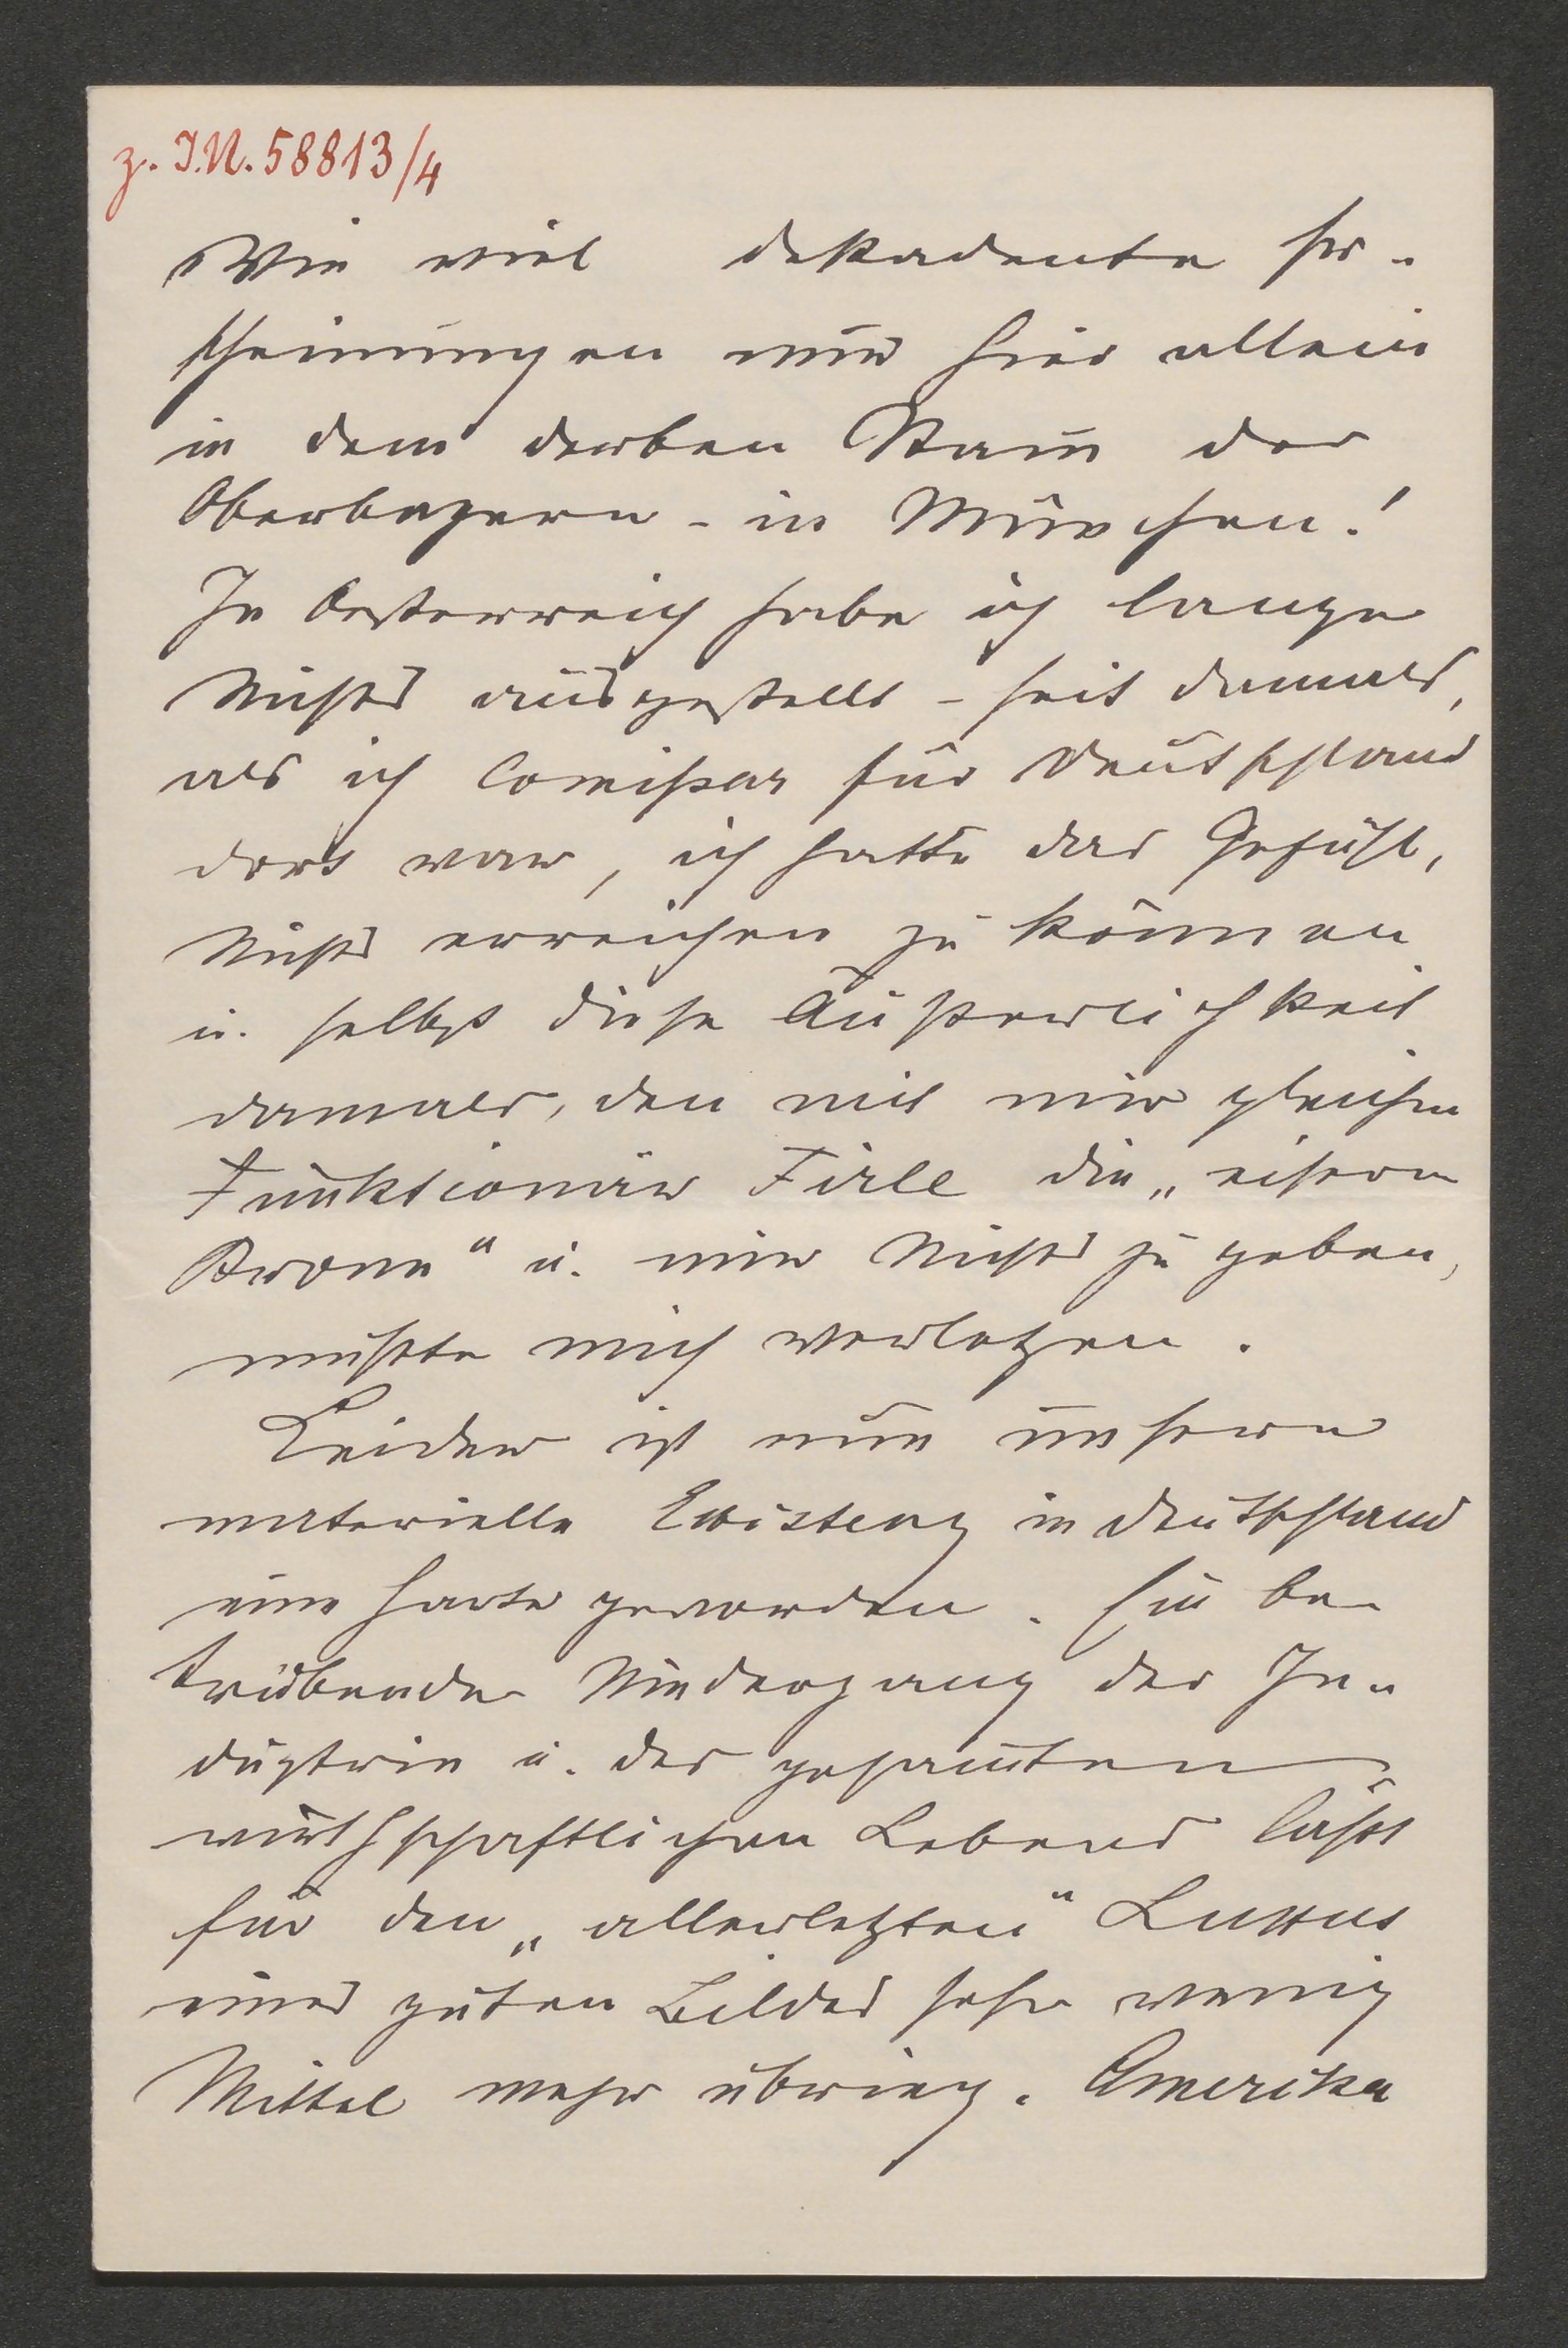 z. I.N. 58813/4
Wie viel dekadente Er-
scheinungen nur hier allein
in dem derben Stam̅ der
Oberbayern - in München!
In Oesterreich habe ich lange
Nichts ausgestellt - seit damals,
als ich Com̅issar für Deutschland
dort war, ich hatte das Gefühl,
Nichts erreichen zu können
u. selbst diese Äußerlichkeit
damals, den mit mir gleichen
Funktionär Firle die „eiserne
Krone" u. mir Nichts zu geben,
mußte mich verletzen.
Leider ist nun unsere
materielle Existenz in Deutschland
eine harte geworden. Ein be-
trübender Niedergang der In-
dustrie u. des gesam̅ten
wirthschaftlichen Lebens läßt
für den „allerletzten" Luxus
eines guten Bildes sehr wenig
Mittel mehr übrig. Amerika